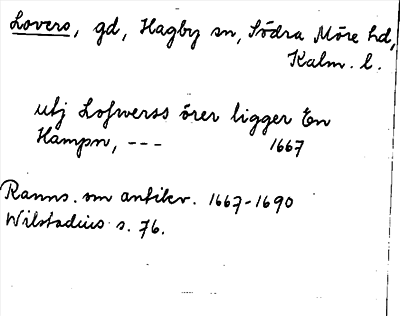 Lovers, gd, Hagby sn, Södra Möre hd,
Kalm. l.
utj Lofwerss örer ligger En
Hampn, --- 1667
Ranns. om antikv. 1667-1690
Wilstadius s. 76.